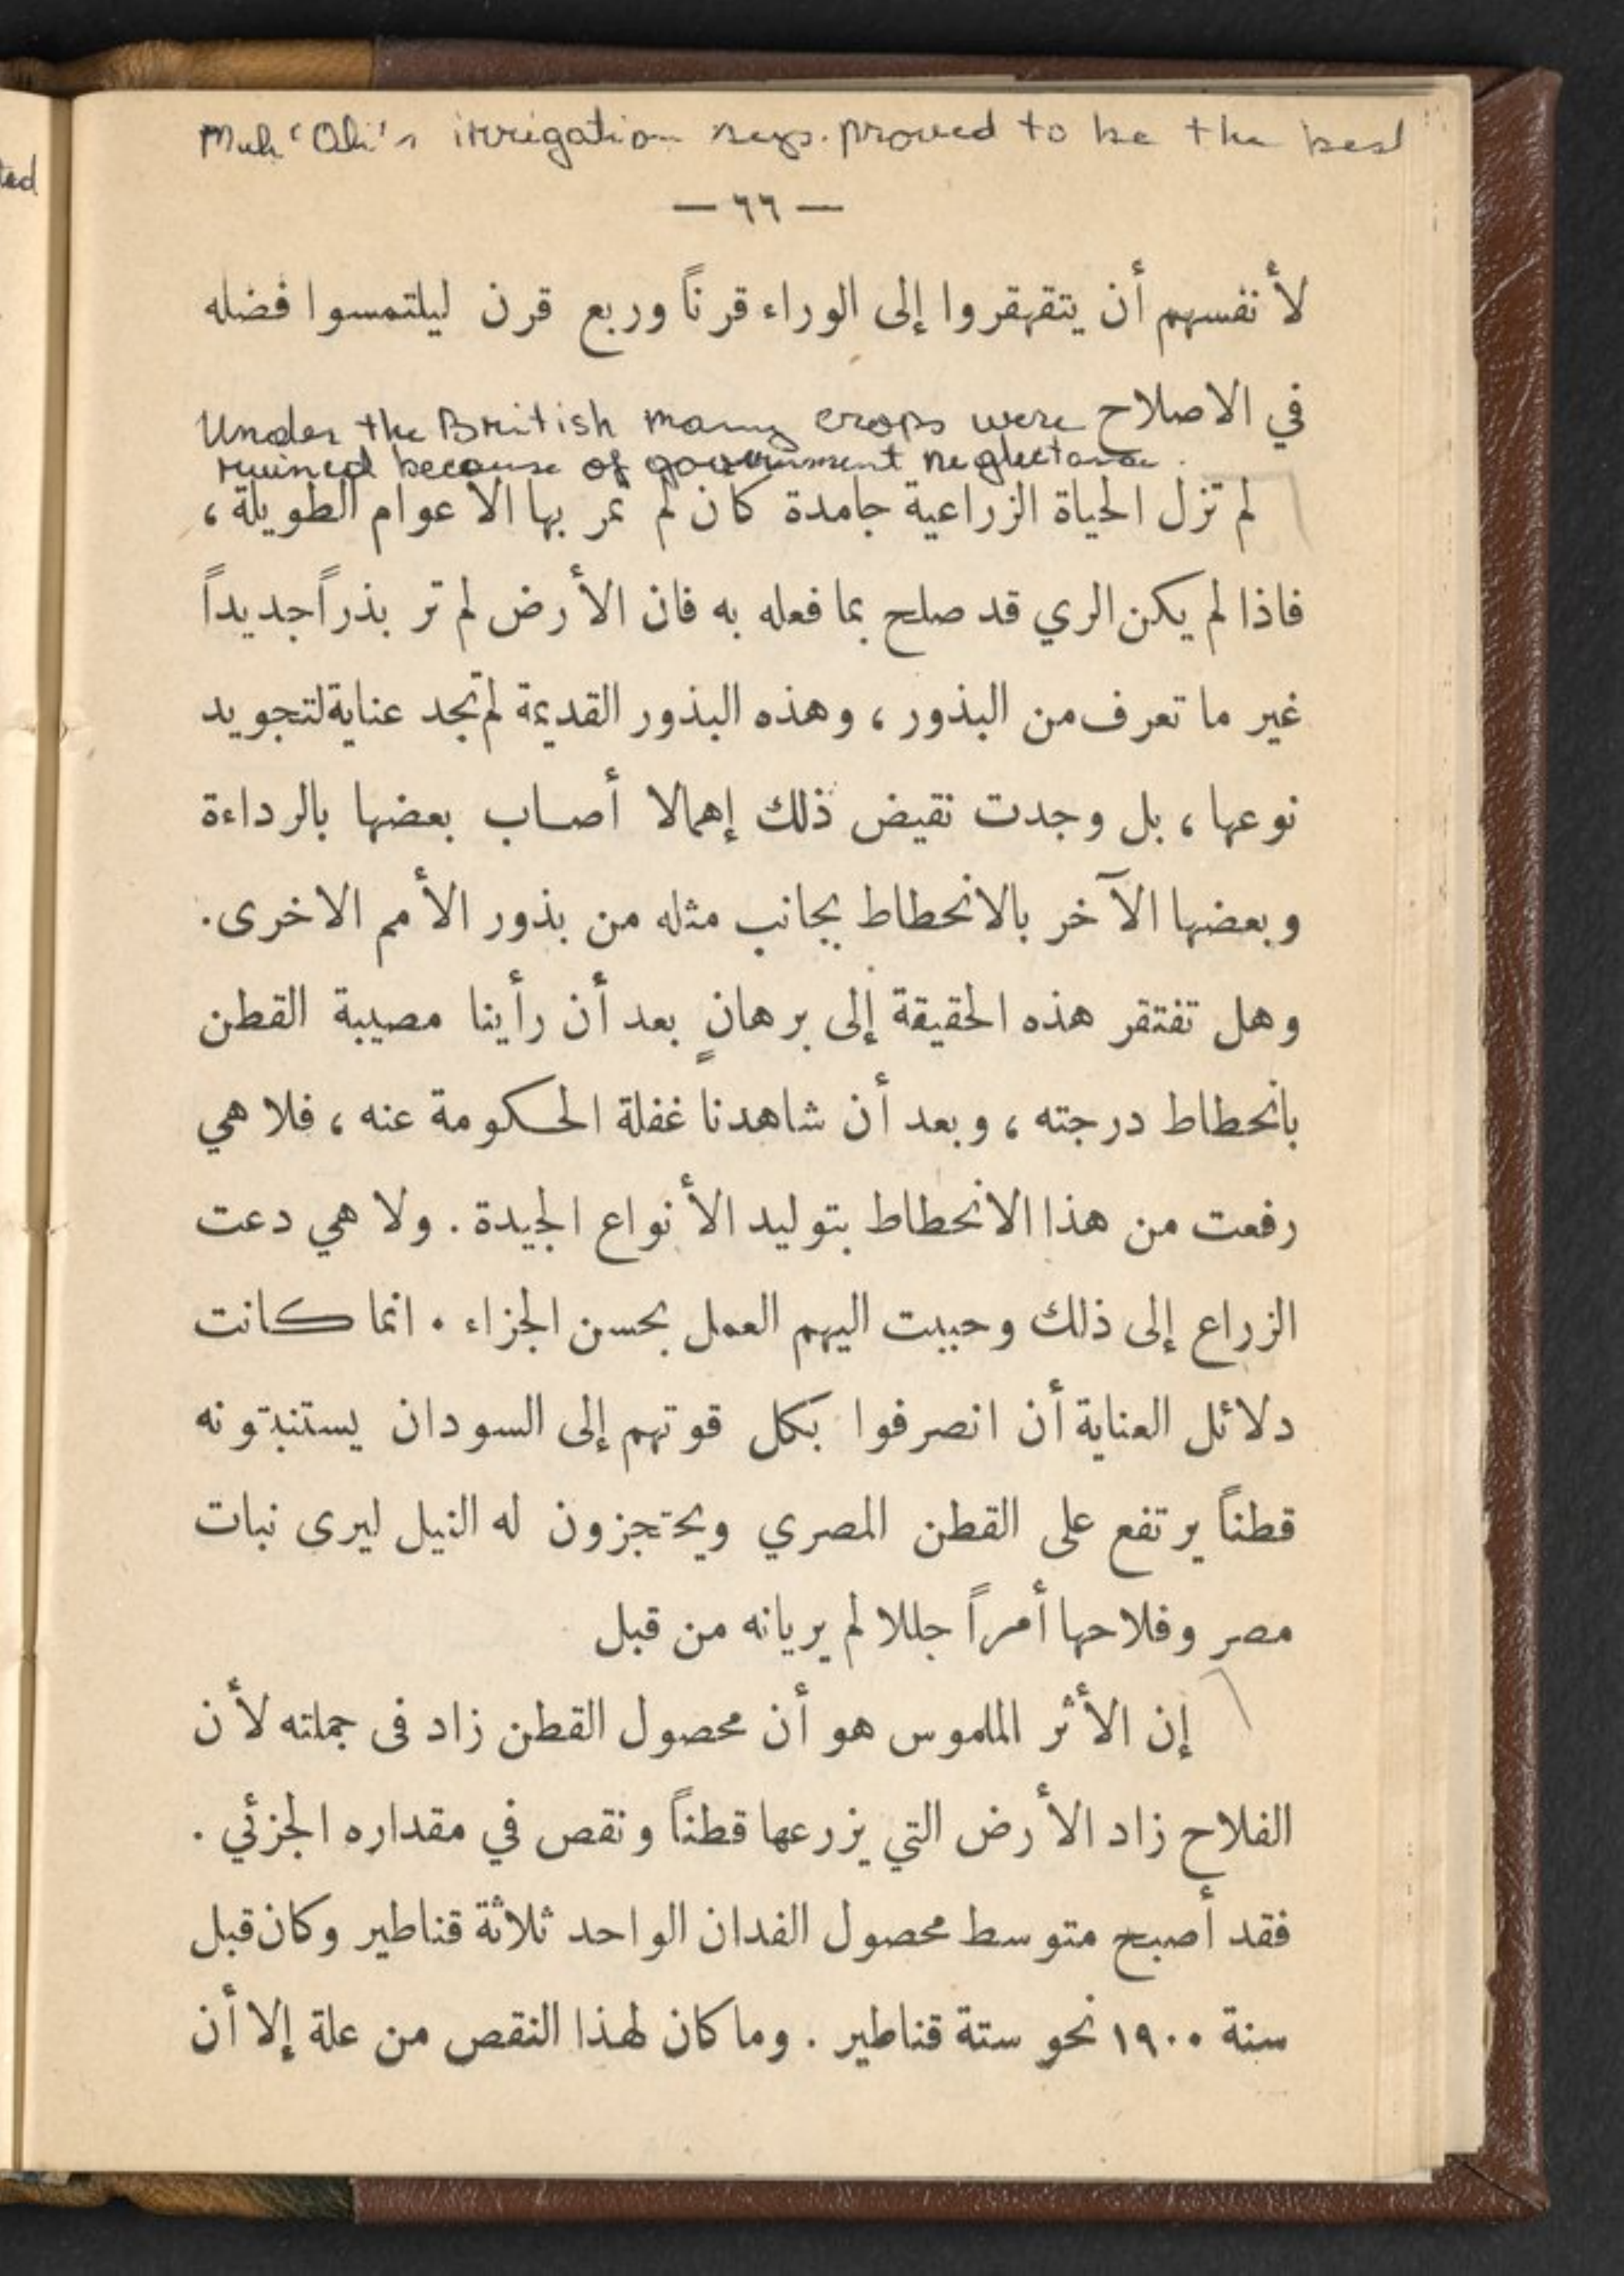 Muh 'Ali's irrigation sys. proved to be the best
ted
— ٦٦ —
لأنفسهم أن يتقهقروا إلى الوراء قرناً وربع قرن ليلتمسوا فضله
في الاصلاح
Under the British many crops were
ruined because of government neglectance.
لم تزل الحياة الزراعية جامدة كان لم تمر بها الاعوام الطويلة ،
فاذا لم يكن الري قد صلح بما فعله به فان الأرض لم تر بذراً جديداً
غير ما تعرف من البذور ، وهذه البذور القديمة لم تجد عناية لتجويد
نوعها ، بل وجدت نقيض ذلك إهمالا أصاب بعضها بالرداءة
وبعضها الآخر بالانحطاط بجانب مثله من بذور الأمم الاخرى.
وهل تفتقر هذه الحقيقة إلى برهانٍ بعد أن رأينا مصيبة القطن
بانحطاط درجته ، وبعد أن شاهدنا غفلة الحكومة عنه ، فلا هي
رفعت من هذا الانحطاط بتوليد الأنواع الجيدة . ولا هي دعت
الزراع إلى ذلك وحببت اليهم العمل بحسن الجزاء . انما كانت
دلائل العناية أن انصرفوا بكل قوتهم إلى السودان يستنبتونه
قطناً يرتفع على القطن المصري ويحتجزون له النيل ليرى نبات
مصر وفلاحها أمراً جللا لم يريانه من قبل
إن الأثر الملموس هو أن محصول القطن زاد فى جملته لأن
الفلاح زاد الأرض التي يزرعها قطناً ونقص في مقداره الجزئي .
فقد أصبح متوسط محصول الفدان الواحد ثلاثة قناطير وكان قبل
سنة ١٩٠٠ نحو ستة قناطير . وما كان لهذا النقص من علة إلا أن